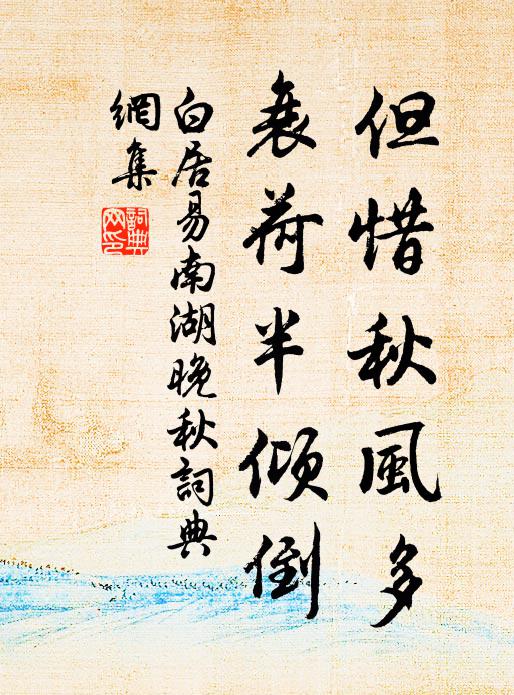 但惜秋風多
衰荷半傾倒
白居易南湖晚秋詞典
網集
詞典
网印